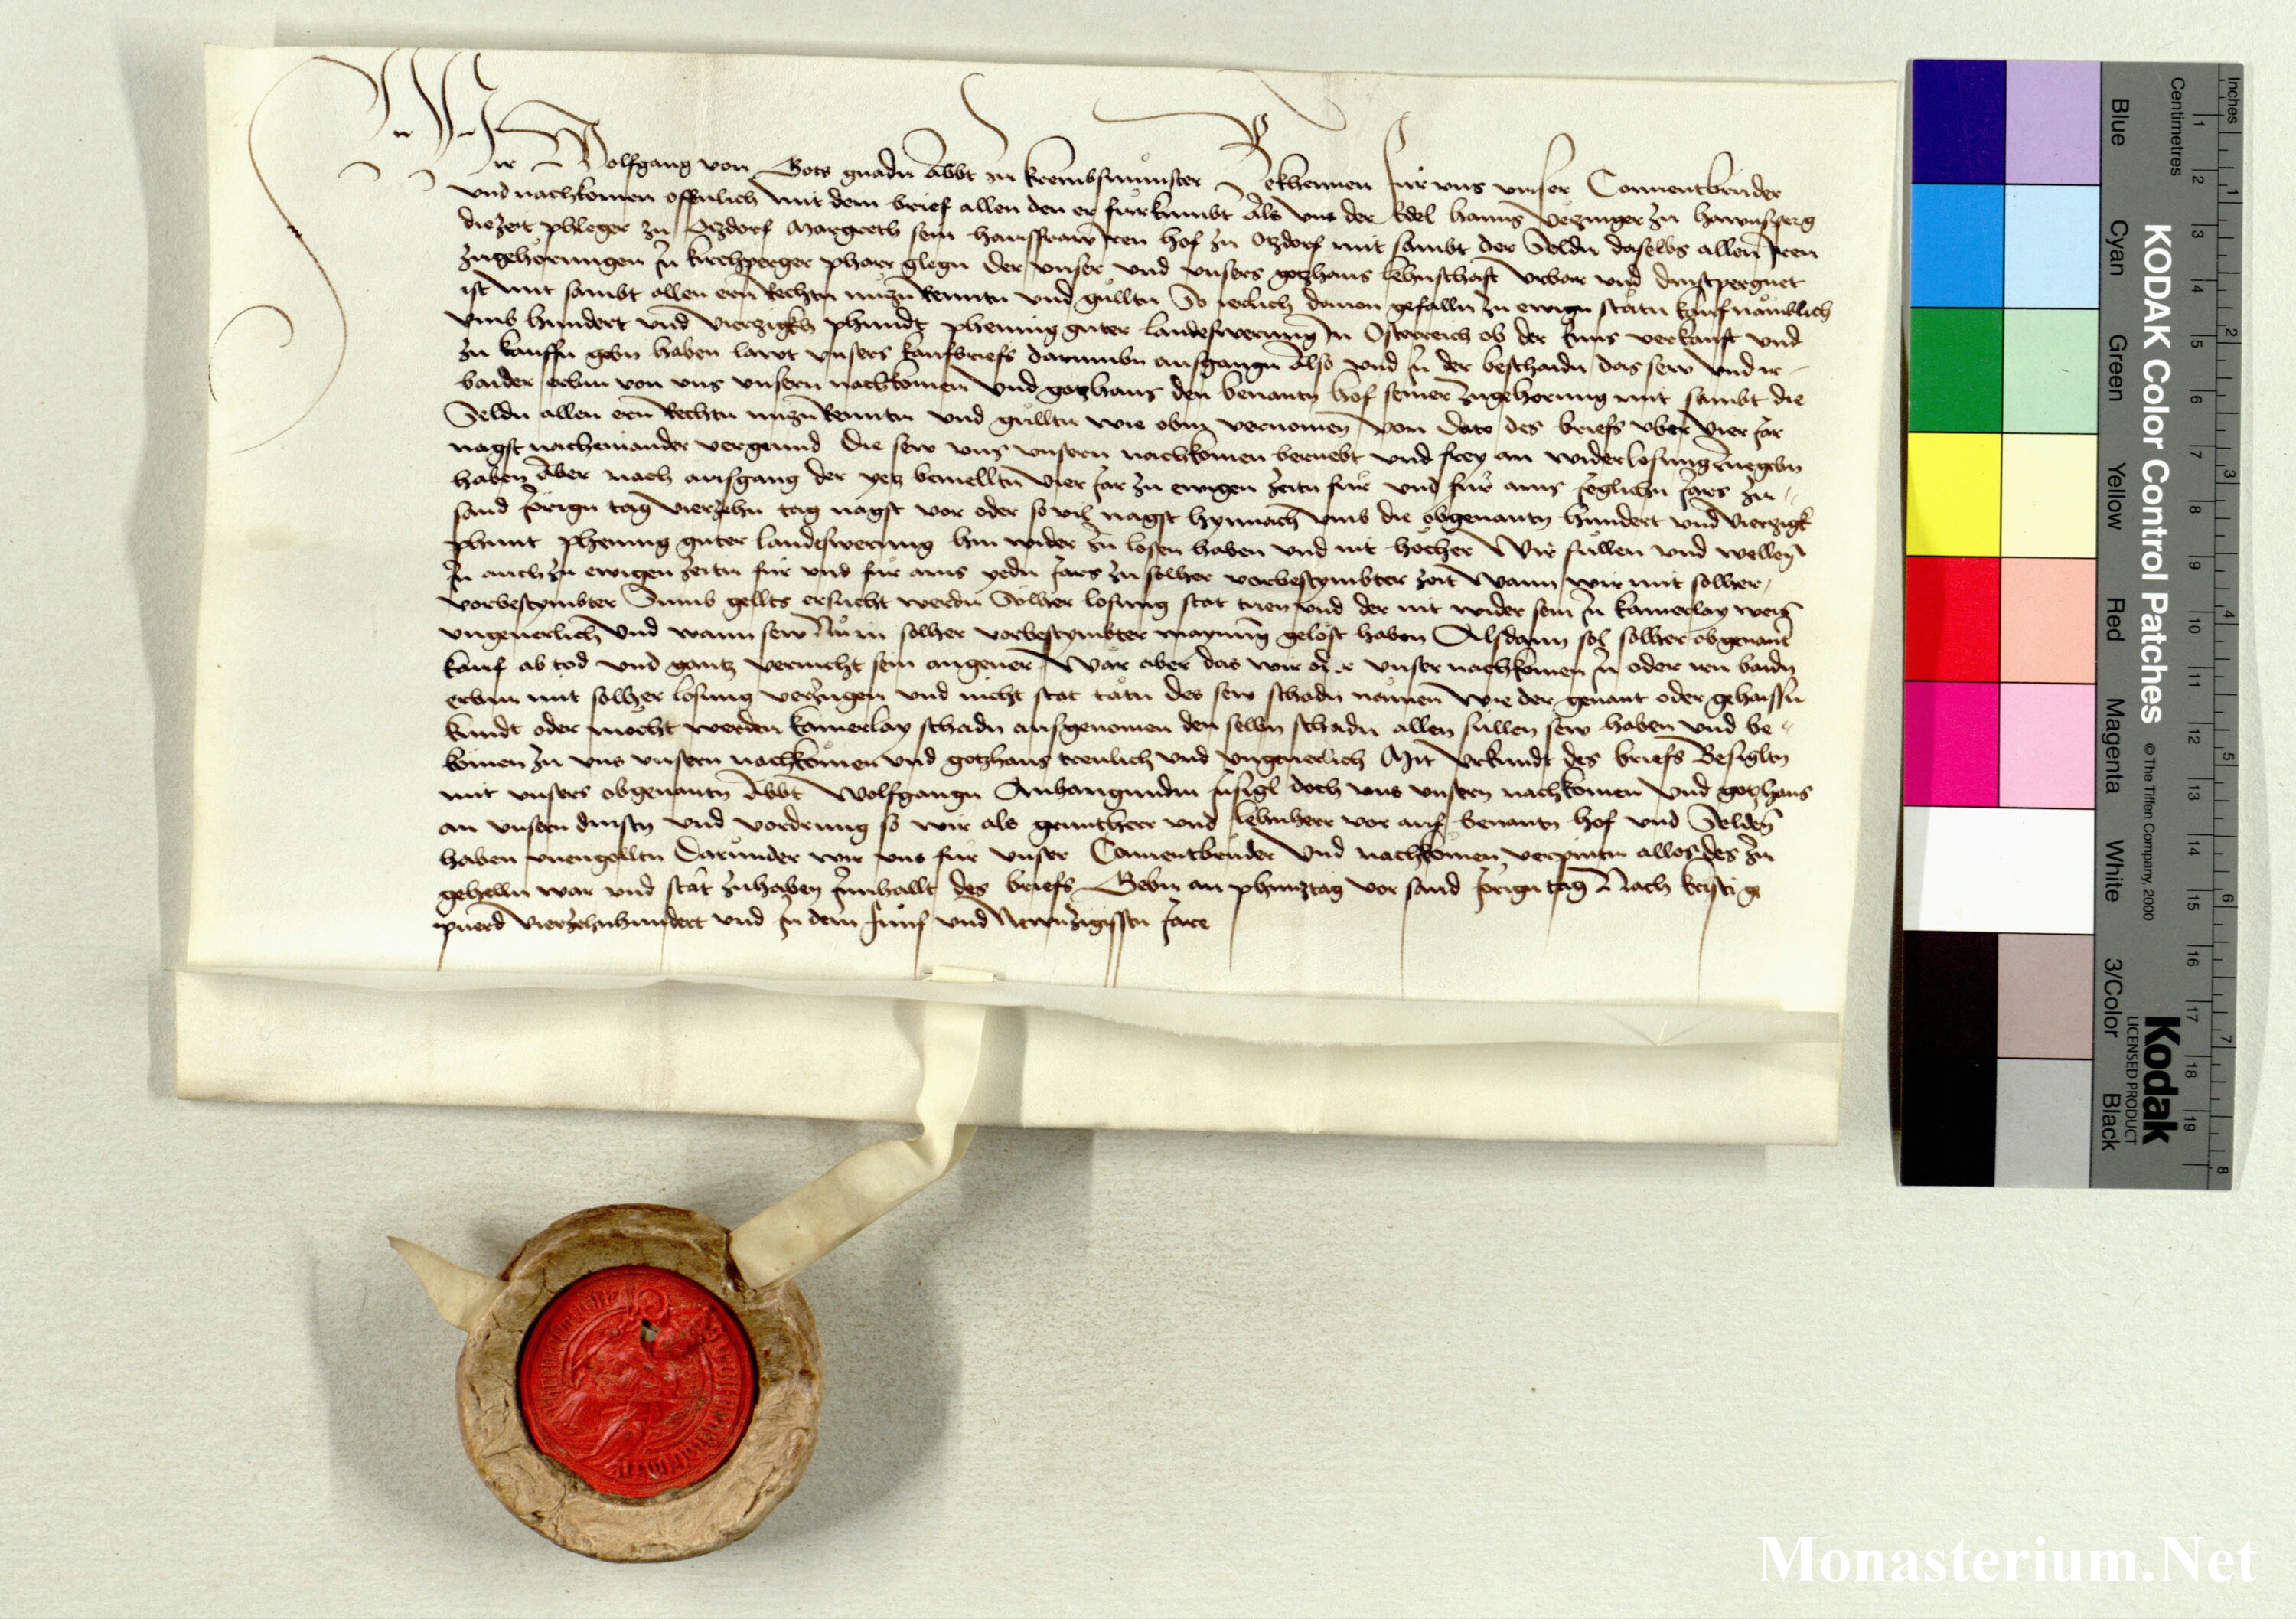 Wir Wolfgang von Gots gnadn Abbt zu krembsmunster Bekhennen fur uns unser Conuentbruder
und nachkomen offenlich mit dem brief allen den er furkumbt Als uns der Edel hanns zu
die zeit phleger zu Otzdorf Margreth sein hausfraw Iren hof zu Otzdorf mit sambt der Seldn daselbs allen Iren
zugehorungen In kirchperger pharr glegn der unser und unsers gotzhaus lehnschaft Urbar und
ist mit sambt allen ern Rechtn nuzn Renntn und gulltn So ierlich dauon gefalln zu ewign statn kauf namblich
umb hundert und vierzigkh phundt phening guter landeswerung In Osterreich ob der Enns verkauft und
zu kauffn gebn haben lawt unsers kaufbriefs darumbn ausgangn Also und In der beschaidn das sew und ir
baider erbm von uns unsern nachkomen und gotzhaus den benantn hof seiner zugehorung mit sambt die
Seldn allen ern Rechtn nuzn Renntn und gulltn wie obm vernomen vom Dato des briefs uber vier Jar
nagst nacheinander die sew uns unsern nachkomen beruebt und frey an widerlosung
haben Aber nach ausgang der yetz bemelltn vier Jar zu ewigen zeitn fur und fur ains Jeglichn Jars zu
sand Jorign tag vierzehn tag nagst vor oder so vil nagst hynnach umb die obgenantn hundert und vierzigk
phunt phening guter landeswerung hin wider zu losen haben und nit hocher Wir sullen und wellen
In auch zu ewigen zeitn fur und fur ains yedn Jars zu solher vorbestymbter zeit Wann wir mit solher
vorbestymbter Summ gellts ersucht werdn Solher losung stat tuen und der nit wider sein In kainerlay weis
ungeuerlich Und wann sew Nu in solher vorbestymbter maynung gelost haben Alsdann sol solher obgenant
kauf ab tod und gantz vernicht sein angeuer War aber das wir oder unser nachkomen In oder irn baidn
erbm mit solher losung verzugen und nicht stat tatn des sew schadn namen wie der genant oder gehaissn
kundt oder mocht werden kainerlay schadn ausgenomen den selbn schadn allen sullen sew haben und be
komen zu uns unsern nachkomen und gotzhaus treulich und ungeuerlich Mit Urkundt des briefs Besigltn
mit unsers obgenantn Abbt Wolfgangn Anhangundm Insigl doch uns unsern nachkomen und gotzhaus
an unsern dinstn und vordrung so wir als gruntherr und lehnherr vor auf benantn hof und Selden
haben unengolltn Darunder wir uns fur unser Conuentbruder und nachkomen verpintn alles des zu
gehelln war und stat zuhaben Innhallt des briefs Gebn an phinztag vor sand Jorign tag Nach kristi ge
puerd vierzehnhundert und In dem funf und Newnzigisstn Jare
KODAK Color Control Patches © The Tiffen Company, 2000
Kodak
LICENSED PRODUCT
Blue Cyan Green Yellow Red Magenta White 3/Color Black
Inches 1 2 3 4 5 6 7 8
Centimetres 1 2 3 4 5 6 7 8 9 10 11 12 13 14 15 16 17 18 19
Monasterium.Net